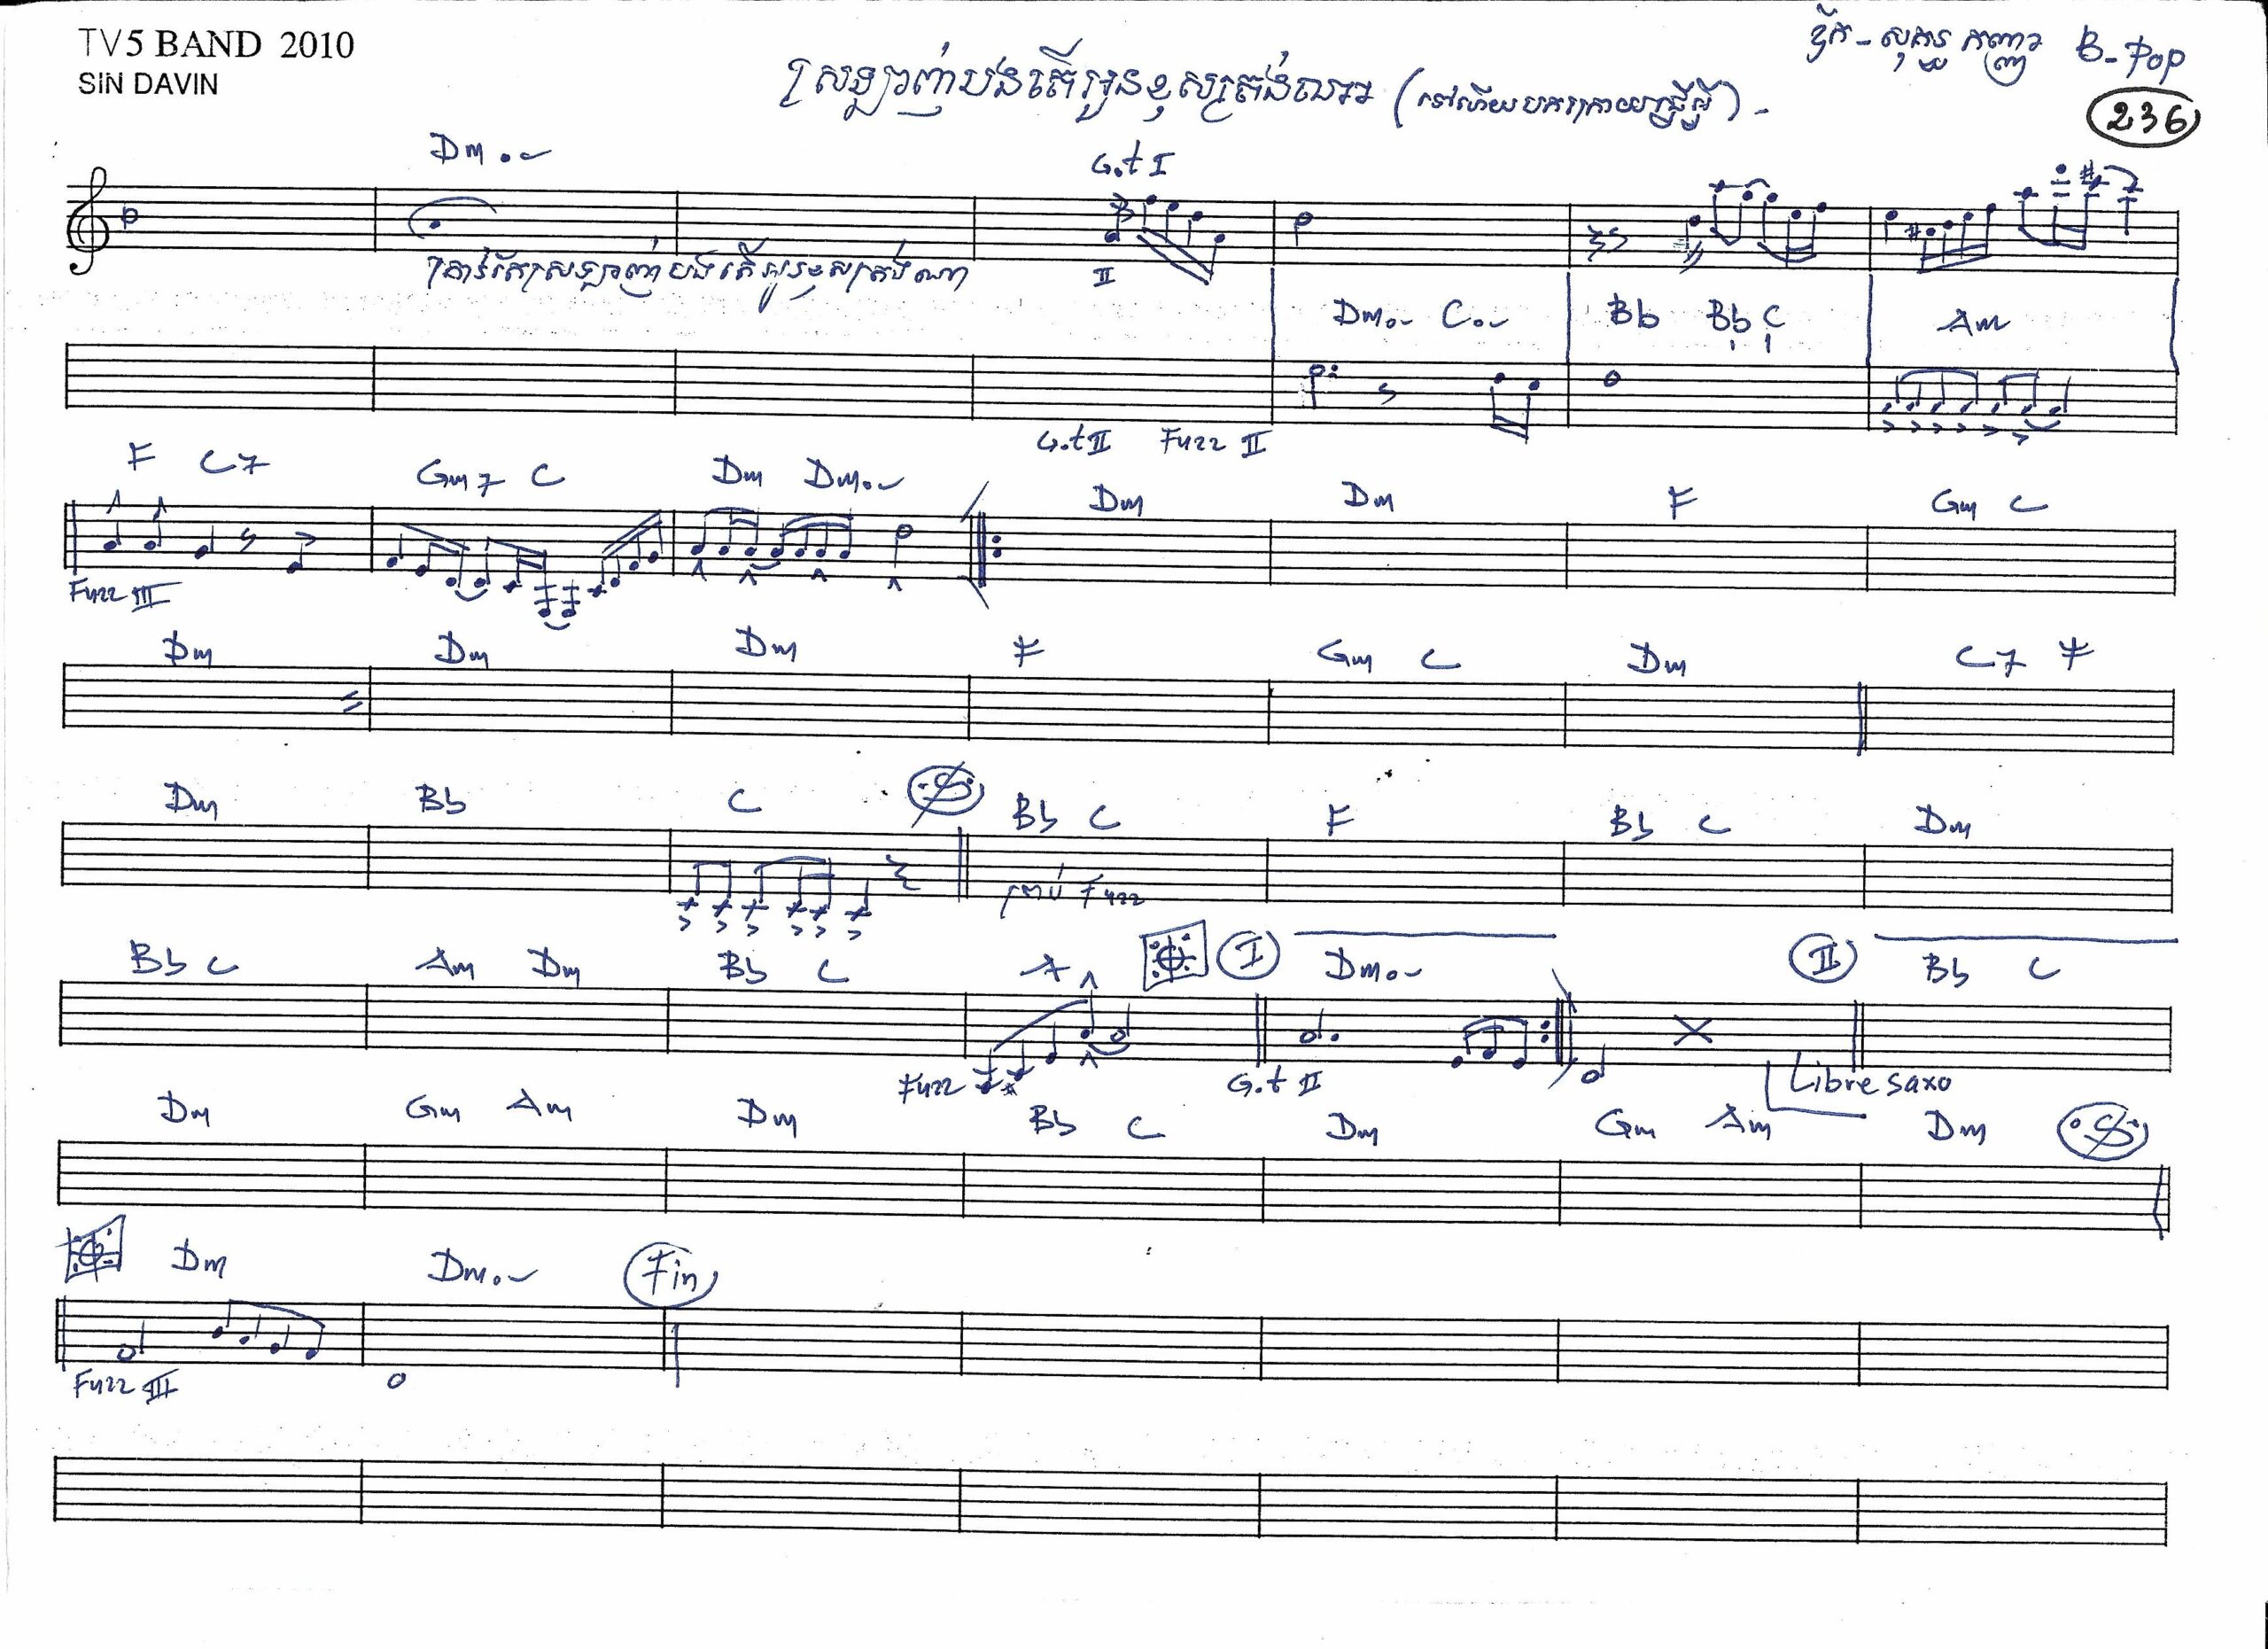 TV5 BAND 2010
SIN DAVIN
ស្រឡាញ់បងតើអូនខុសត្រង់ណា
B-Pop
236
Dm
G.t I
គ្រាន់តែស្រឡាញ់បងតើអូនខុសត្រង់ណា
II
Dm C Bb Bb C Am
G.t II Fuzz II
F C7 Gm7 C Dm Dm Dm Dm F Gm C
Fuzz III
Dm Dm Dm F Gm C Dm C7 F
Dm Bb C Bb C F Bb C Dm
Fuzz
Bb C Am Dm Bb C A I Dm II Bb C
Fuzz G.t II Libre saxo
Dm Gm Am Dm Bb C Dm Gm Am Dm
Dm Dm Fin
Fuzz III